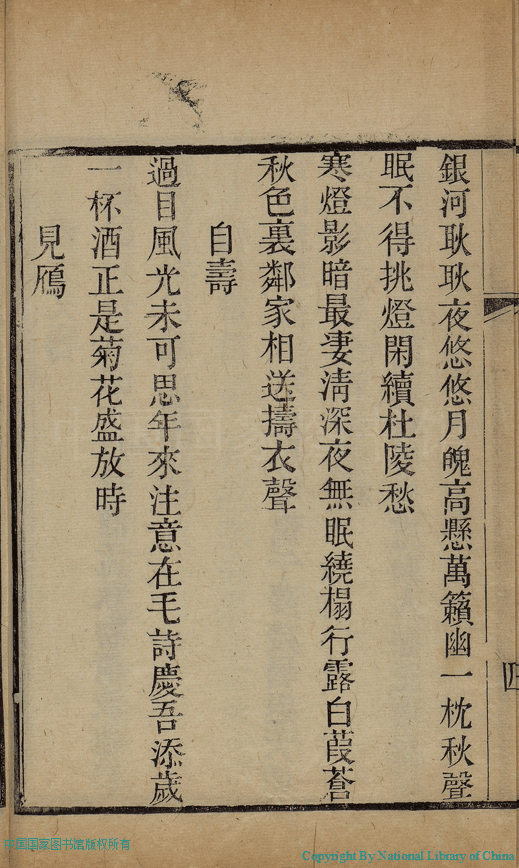 銀河耿耿夜悠悠月魄高懸萬籟幽一枕秋聲
眠不得挑燈閑續杜陵愁
寒燈影暗最淒清深夜無眠繞榻行露白葭蒼
秋色裏鄰家相送擣衣聲
自壽
過目風光未可思年來注意在毛詩慶吾添歲
一杯酒正是菊花盛放時
見鴈
中国国家图书馆版权所有
Copyright By National Library of China